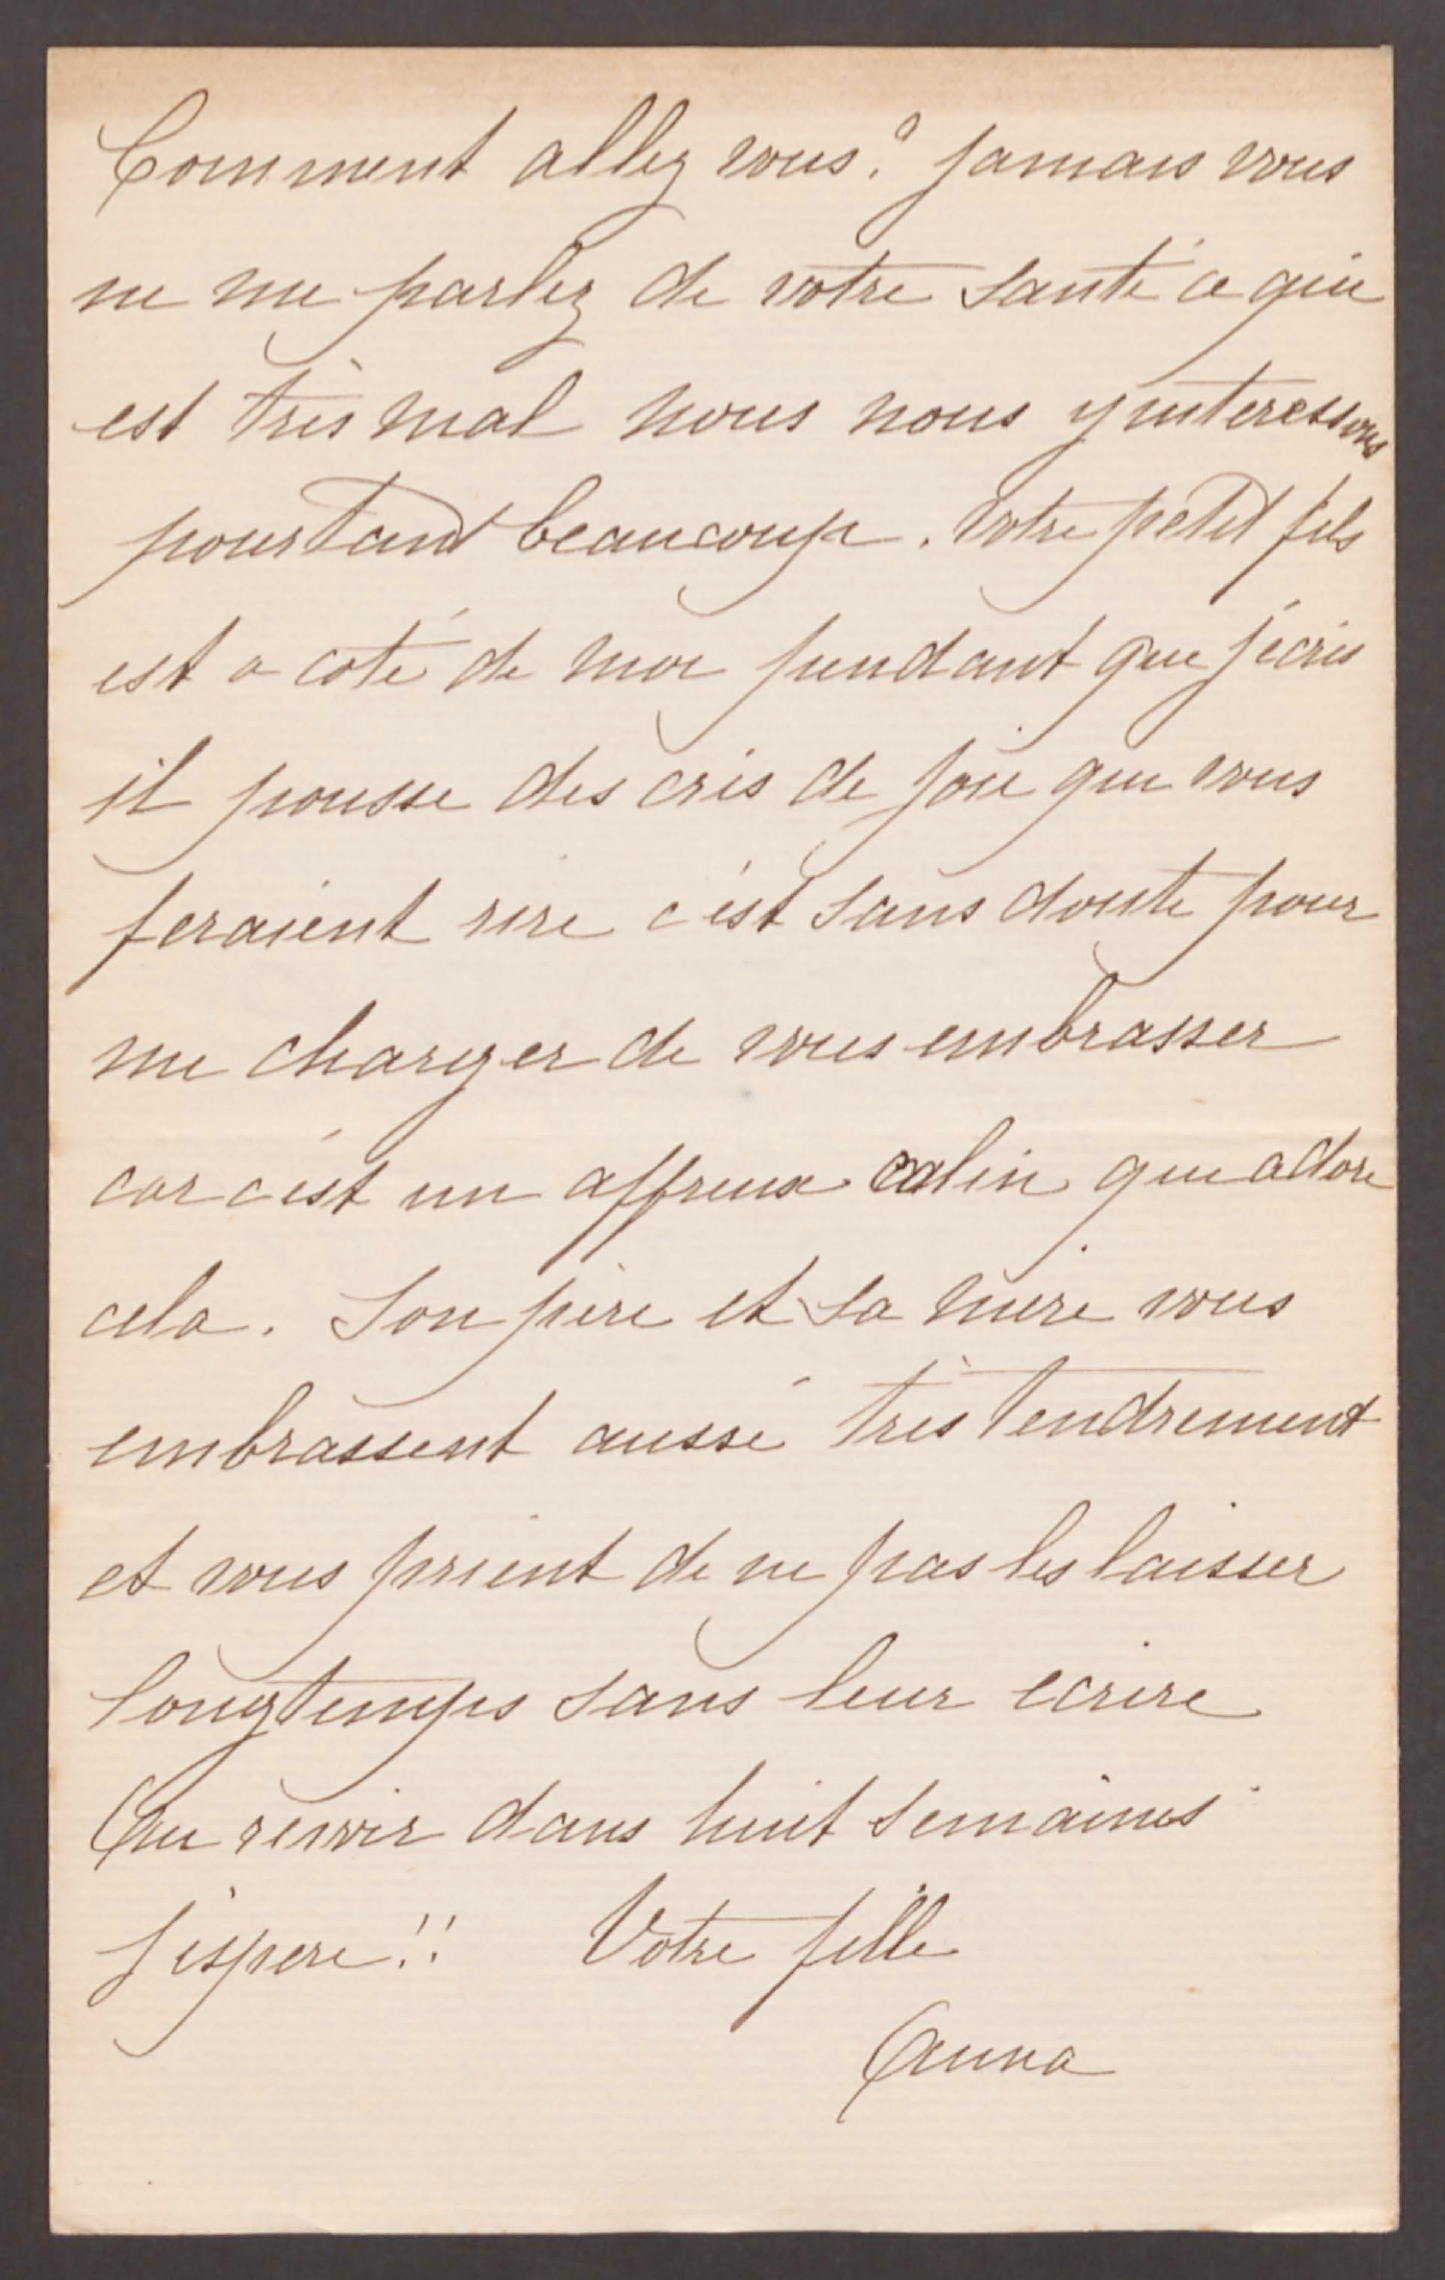 Comment allez vous? jamais vous
ne me parlez de votre santé ce qui
est très mal nous nous y interessons
pourtant beaucoup. Votre petit fils
est a coté de moi pendant que j'écris
il pousse des cris de joie qui vous
feraient rire c'est sans doute pour
me charger de vous embrasser
car c'est un affreux calin qui adore
cela. Son père et sa mère vous
embrassent aussi très tendrement
et vous prient de ne pas les laisser
longtemps sans leur ecrire
Au revoir dans huit semaines
j'espere!! Votre fille
Anna